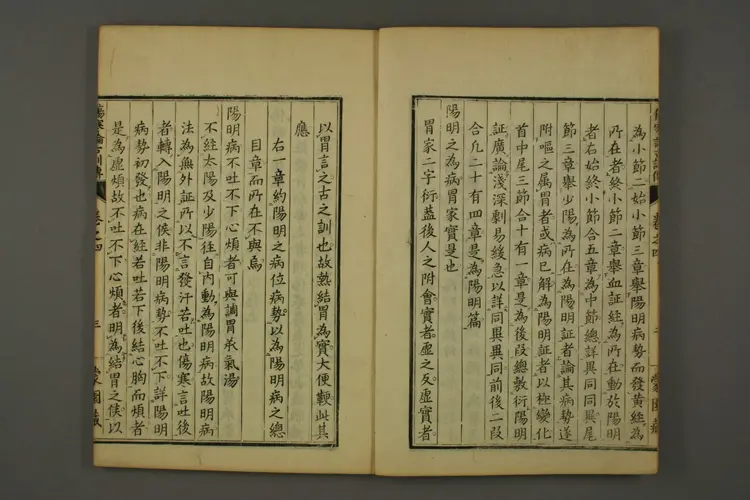 為小節二始小節三章舉陽明病勢而發黃經為
所在者終小節二章舉血証経為所在動故陽明
者右始終小節合五章為中節總詳異同同異尾
節三章舉少陽為所在為陽明証者論其病勢遂
附嘔之属胃者或病已解為陽明証者以極變化
首中尾三節合十有一章是為後段總敷衍陽明
証廣論淺深劇易緩急以詳同異異同前後二段
合凢二十有四章是為陽明篇
陽明之為病胃家實是也
胃家二字衍蓋後人之附會實者虛之反虛實者
以胃言之古之訓也故熱結胃為實大便鞕此其
應
右一章約陽明之病位病勢以為陽明病之總
目章而所在不與焉
陽明病不吐不下心煩者可與調胃承氣湯
不経太陽及少陽徃自内動為陽明病故陽明病
法為無外証所以不言發汗若吐也傷寒言吐後
者轉入陽明之候非陽明病勢不吐不下詳陽明
病勢初發也病在経若吐若下後結心胸而煩者
是為虛煩故不吐不下心煩者明為結胃之候以
傷寒論古訓傳 卷之四 三